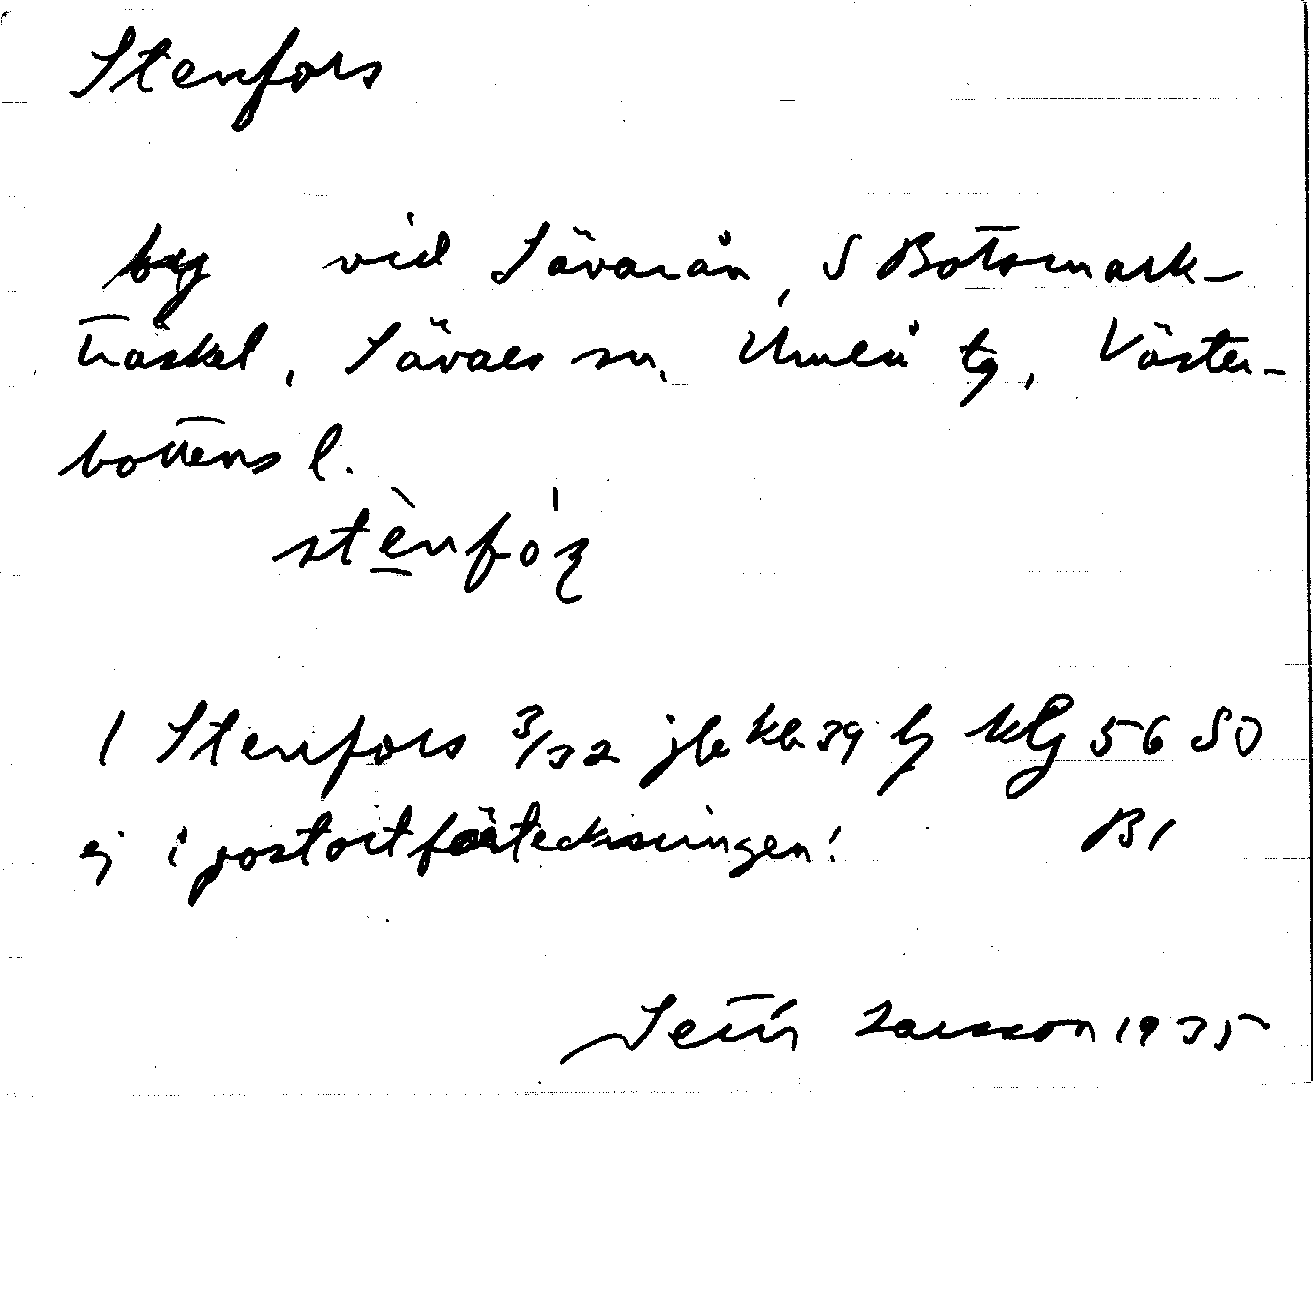 Stenfors
by vid Sävarån, S Botsmark-
träsket, Sävars sn, Umeå tg, Väster-
bottens l.
stènfóʂ
1 Stenfors 3/32 jb kb 39 by klg 56 SO
ej i postortförteckningen! B1
Setír Larsson 1935